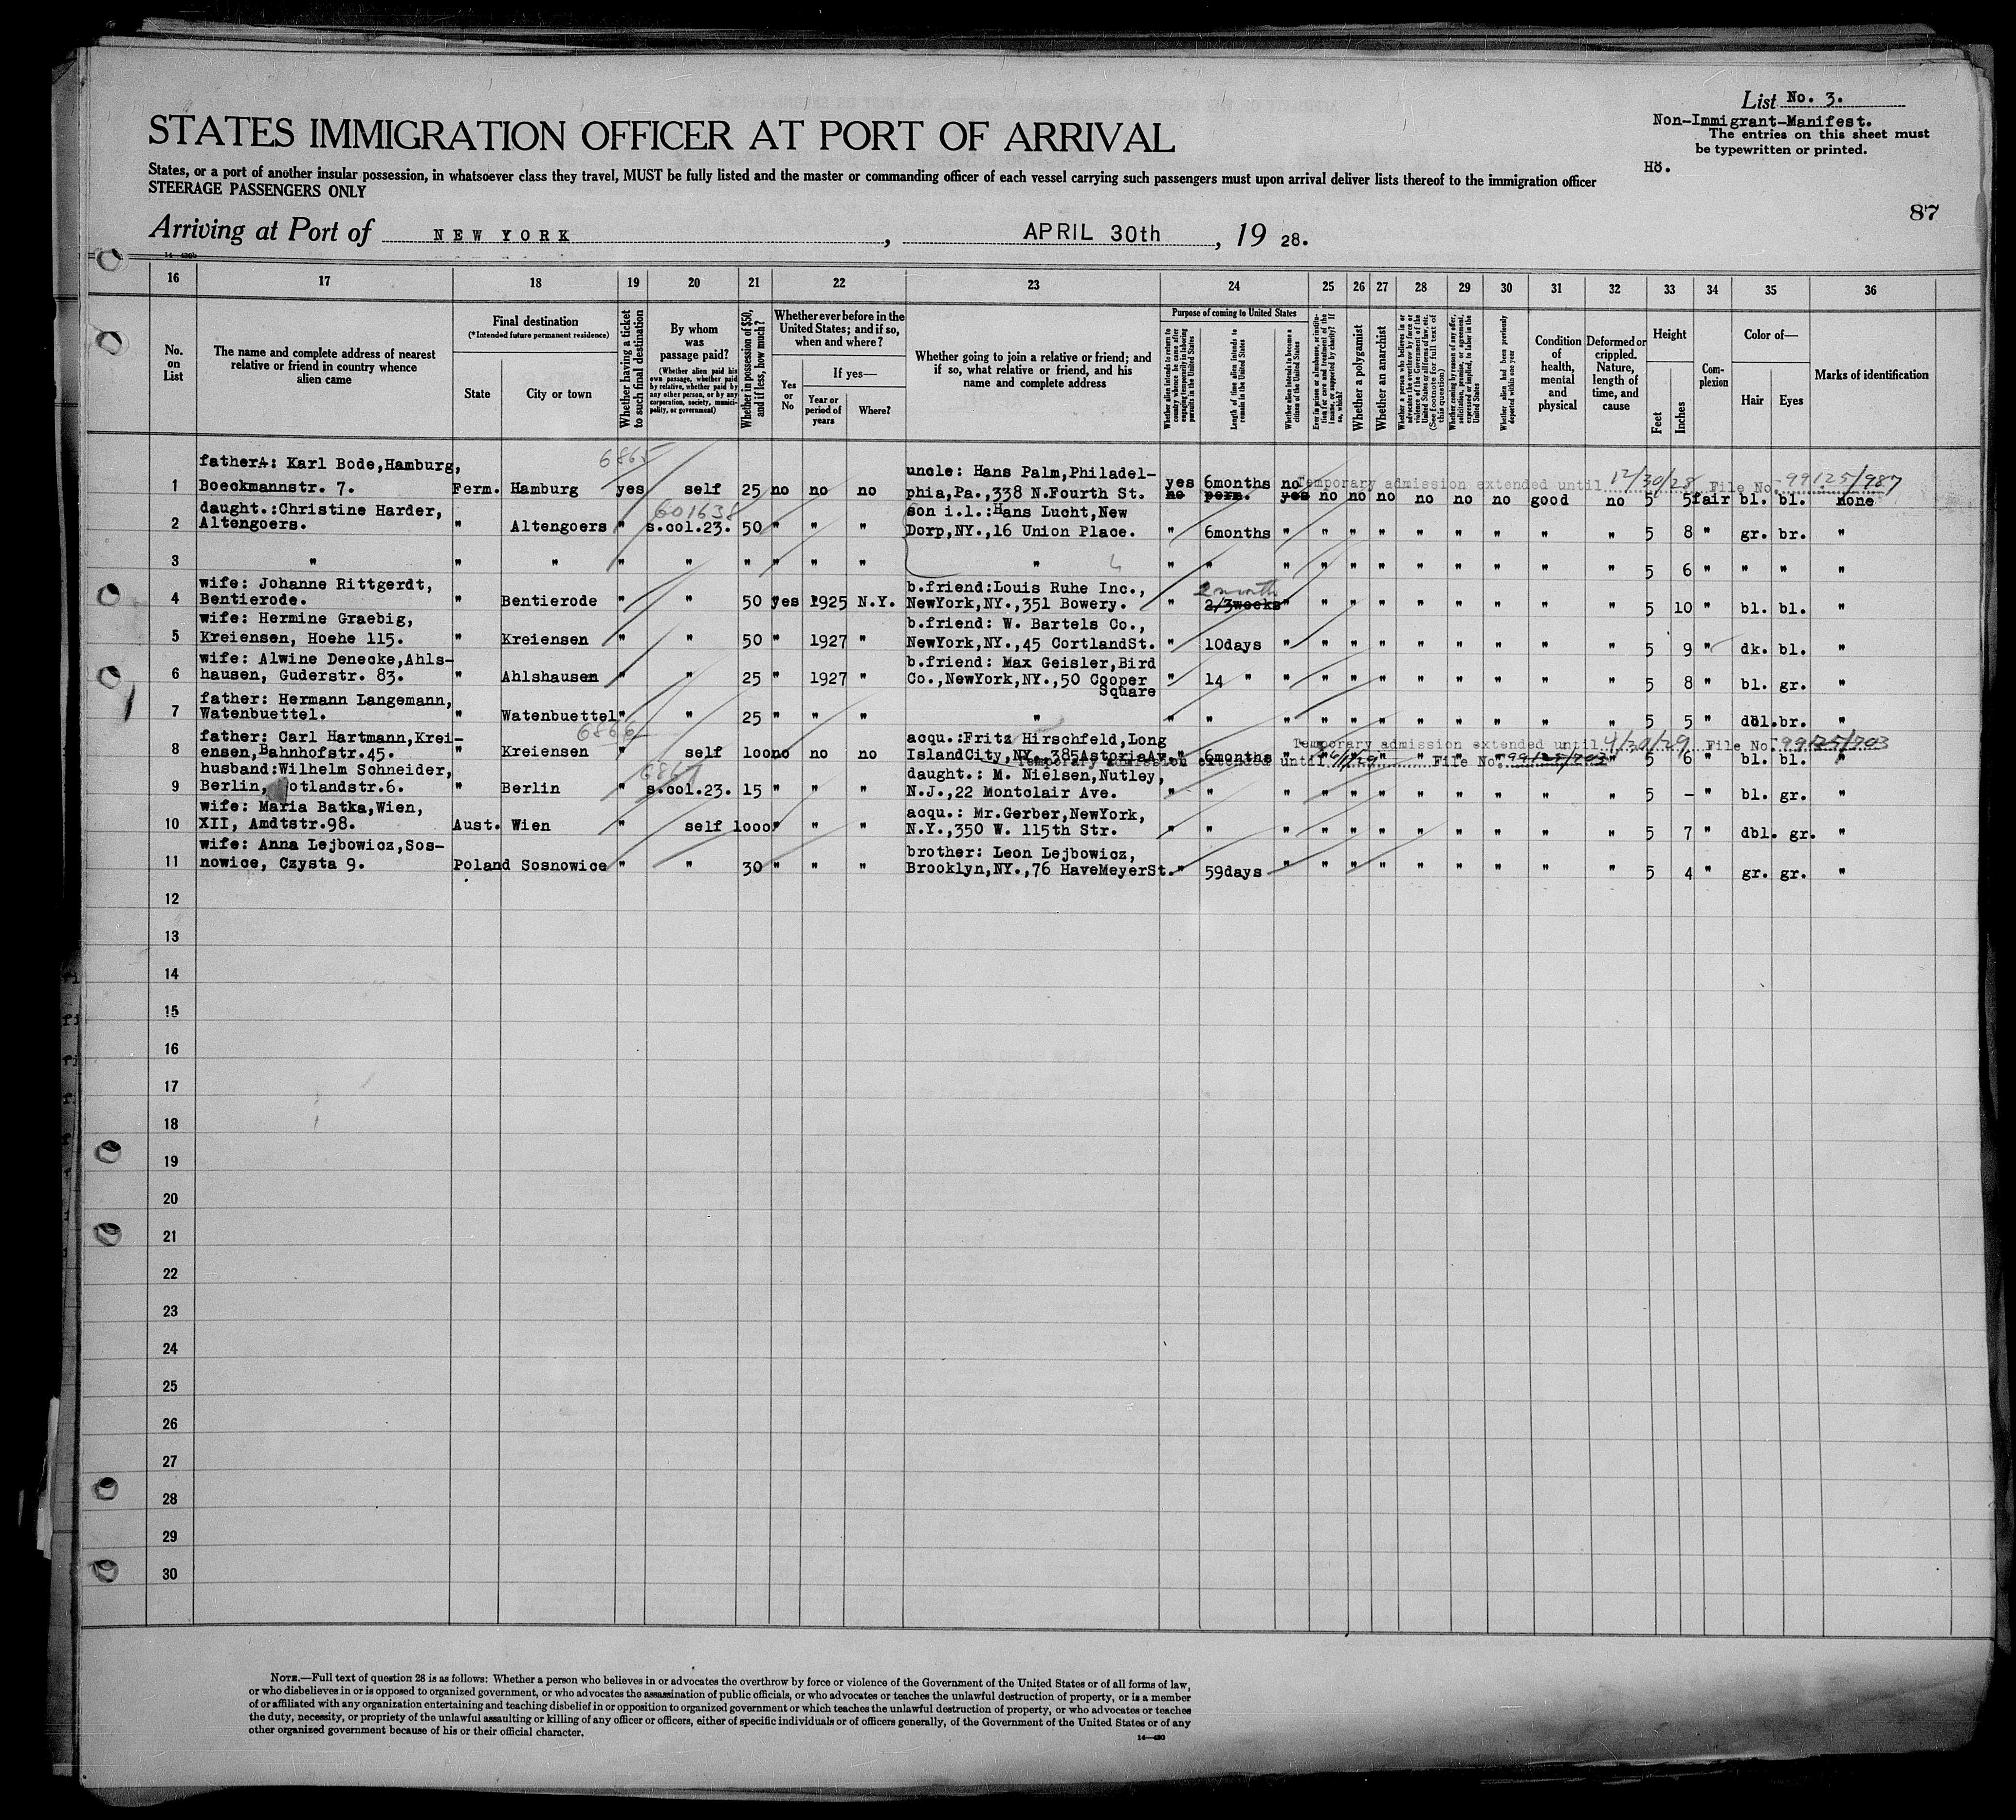 List No. 3.
Non-Immigrant-Manifest.
The entries on this sheet must
be typewritten or printed.
Hö.
STATES IMMIGRATION OFFICER AT PORT OF ARRIVAL
States, or a port of another insular possession, in whatsoever class they travel, MUST be fully listed and the master or commanding officer of each vessel carrying such passengers must upon arrival deliver lists thereof to the immigration officer
STEERAGE PASSENGERS ONLY
87
Arriving at Port of NEW YORK, APRIL 30th, 19 28.
16 17 18 19 20 21 22 23 24 25 26 27 28 29 30 31 32 33 34 35 36
No. on List
The name and complete address of nearest relative or friend in country whence alien came
Final destination
(*Intended future permanent residence)
State
City or town
Whether having a ticket to such final destination
By whom was passage paid?
(Whether alien paid his own passage, whether paid by relative, whether paid by any other person, or by any corporation, society, municipality, or government)
Whether in possession of $50, and if less, how much?
Whether ever before in the United States; and if so, when and where?
Yes or No
If yes—
Year or period of years
Where?
Whether going to join a relative or friend; and if so, what relative or friend, and his name and complete address
Purpose of coming to United States
Length of time alien intends to remain in the United States
Whether alien intends to become a citizen of the United States
Whether a polygamist
Whether an anarchist
Condition of health, mental and physical
Deformed or crippled. Nature, length of time, and cause
Height
Feet
Inches
Complexion
Color of—
Hair
Eyes
Marks of identification
6865
father: Karl Bode,Hamburg, uncle: Hans Palm,Philadel- yes 6months no Temporary admission extended until 12/30/28 File No. 99125/987
1 Boeckmannstr. 7. Ferm. Hamburg yes self 25 no no no phia,Pa.,338 N.Fourth St. no perm. yes no no no no no no good no 5 5 fair bl. bl. none
601638
daught.:Christine Harder, son i.l.:Hans Lucht,New
2 Altengoers. " Altengoers " s.col.23. 50 " " " Dorp,NY.,16 Union Place. " 6months " " " " " " " " " 5 8 " gr. br. "
3 " " " " " " " " " " " " " " " " " " " " " 5 6 " " " "
wife: Johanne Rittgerdt, b.friend:Louis Ruhe Inc., 2 month
4 Bentierode. " Bentierode " " 50 yes 1925 N.Y. NewYork,NY.,351 Bowery. " 2/3weeks " " " " " " " " " 5 10 " bl. bl. "
wife: Hermine Graebig, b.friend: W. Bartels Co.,
5 Kreiensen, Hoehe 115. " Kreiensen " " 50 " 1927 " NewYork,NY.,45 CortlandSt. " 10days " " " " " " " " " 5 9 " dk. bl. "
wife: Alwine Denecke,Ahls- b.friend: Max Geisler,Bird
6 hausen, Guderstr. 83. " Ahlshausen " " 25 " 1927 " Co.,NewYork,NY.,50 Cooper Square " 14 " " " " " " " " " " 5 8 " bl. gr. "
father: Hermann Langemann,
7 Watenbuettel. " Watenbuettel " " 25 " " " " " " " " " " " " " " " 5 5 " dbl. br. "
6866
father: Carl Hartmann,Krei- acqu.:Fritz Hirschfeld,Long Temporary admission extended until 4/30/29 File No. 99125/703
8 ensen,Bahnhofstr.45. " Kreiensen " self 100 no no no IslandCity,NY.,385AstoriaAv. " 6months " " " " " " " 5 6 " bl. bl. "
Temporary admission extended until File No. 99125/703
6867
husband:Wilhelm Schneider, daught.: M. Nielsen,Nutley,
9 Berlin, otlandstr.6. " Berlin " s.col.23. 15 " " " N.J.,22 Montclair Ave. " " " " " " " " " " " 5 - " bl. gr. "
wife: Maria Batka,Wien, acqu.: Mr.Gerber,NewYork,
10 XII, Amdtstr.98. Aust. Wien " self 1000 " " " N.Y.,350 W. 115th Str. " " " " " " " " " " " 5 7 " dbl. gr. "
wife: Anna Lejbowicz,Sos- brother: Leon Lejbowicz,
11 nowice, Czysta 9. Poland Sosnowice " " 30 " " " Brooklyn,NY.,76 HaveMeyerSt. " 59days " " " " " " " " " 5 4 " gr. gr. "
12
13
14
15
16
17
18
19
20
21
22
23
24
25
26
27
28
29
30
NOTE.—Full text of question 28 is as follows: Whether a person who believes in or advocates the overthrow by force or violence of the Government of the United States or of all forms of law,
or who disbelieves in or is opposed to organized government, or who advocates the assassination of public officials, or who advocates or teaches the unlawful destruction of property, or is a member
of or affiliated with any organization entertaining and teaching disbelief in or opposition to organized government or which teaches the unlawful destruction of property, or who advocates or teaches
the duty, necessity, or propriety of the unlawful assaulting or killing of any officer or officers, either of specific individuals or of officers generally, of the Government of the United States or of any
other organized government because of his or their official character.
14—430